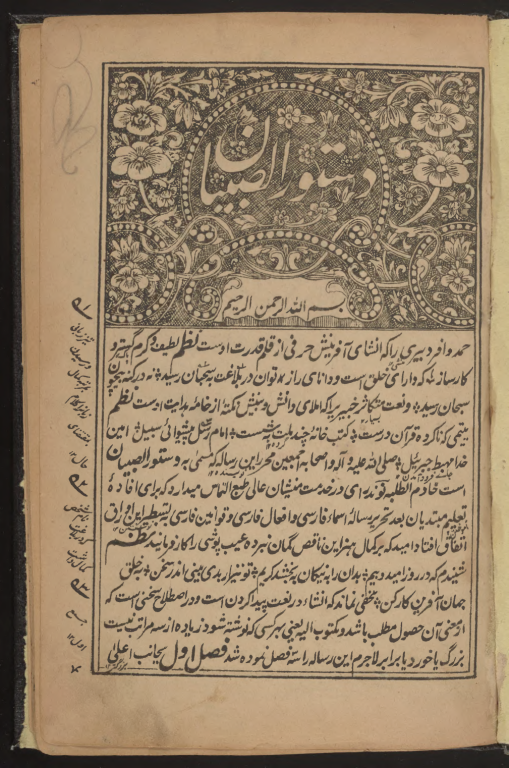 دستور الصبيان
بسم الله الرحمن الرحيم
حمد وافر دبیری را که انشای آفرینش حرفی از قلم قدرت اوست نظم لطیف و کرم گستر و
کارساز که دارای خلق است و دانای راز توان در بلاغت بسحبان رسید نه در کنه بیچون
سبحان رسید و نعت متکاثر خبیر را که املای دانش و بینش نکته از خامه هدایت اوست نظم
یتیمی که ناکرده قرآن درست کتب خانه چند ملت بشست امام رسل پیشوای سبیل امین
خدا مهبط جبرئیل صلی الله علیه و آله و اصحابه اجمعین محرر این رساله که مسمی به دستور الصبیان
است خادم الطلبه نوندہ رای در خدمت منشیان عالی طبع التماس میدارد که برای افادهٔ
تعلیم مبتدیان بعد تحریر رسالهٔ اسماء فارسی و افعال فارسی و قوانین فارسی به تسطیر این اوراق
اتفاق افتاد امید که بر کمال هنر این ناقص گمان نبرده عیب پوشی را کار فرمایند نظم
شنیدم که در روز امید و بیم بدان را به نیکان ببخشد کریم تو نیز ار بدی بینی اندر سخن بخلق
جهان آفرین کار کن مخفی نماند که انشاء در لغت پیدا کردن است و در اصطلاح سخنی است که
از معنی آن حصول مطلب باشد و مکتوب الیه یعنی هر کسی که نوشته شود زیاده از سه مراتب نیست
بزرگ یا خورد یا برابر لاجرم این رساله را سه فصل نموده شد فصل اول بجانب اعلی